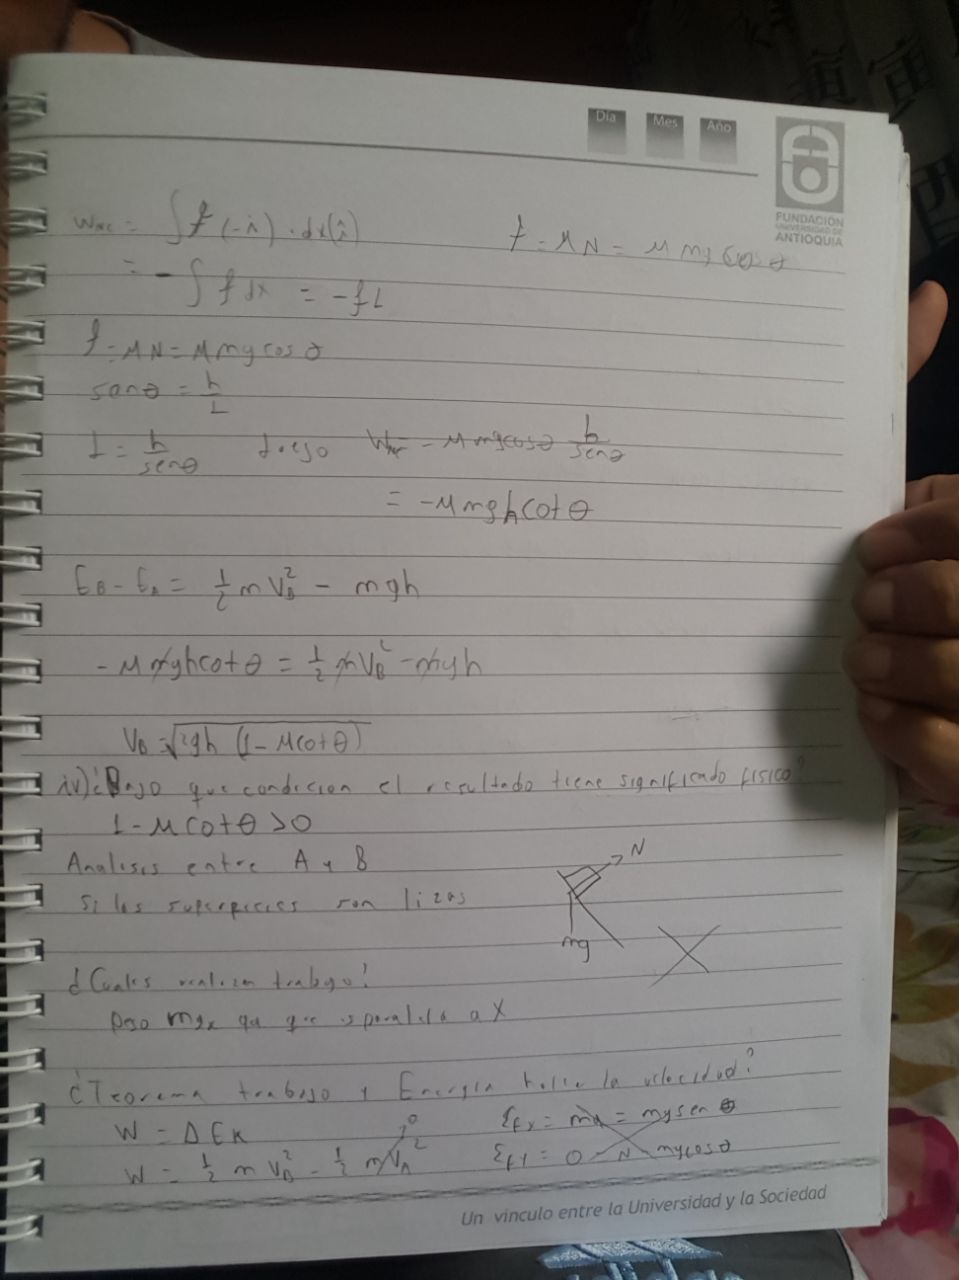 Día Mes Año
FUNDACIÓN
UNIVERSIDAD DE
ANTIOQUIA
Wnc = ∫ f (-î) · dx(î)
f = μN = μ mg cos θ
= - ∫ f dx = -fL
f = μN = μmg cos θ
senθ = h/L
L = h/senθ Luego Wnc = - μ mg cos θ h/senθ
= -μmgh cot θ
E_B - E_A = 1/2 m V_B² - mgh
- μ mgh cot θ = 1/2 m V_B² - mgh
V_B = √2gh (1 - μ cot θ)
iv) ¿Bajo que condicion el resultado tiene significado fisico?
1 - μ cot θ > 0
Analisis entre A y B
N
si las superficies son lizas
mg
¿Cuales realizan trabajo?
Peso mgx ya que es paralela a X
¿Teorema trabajo y Energia halle la velocidad?
W = ΔEk
0
ΣFx = ma = mg sen θ
W = 1/2 m V_B² - 1/2 m V_A²
ΣFy = 0 N mg cos θ
Un vínculo entre la Universidad y la Sociedad